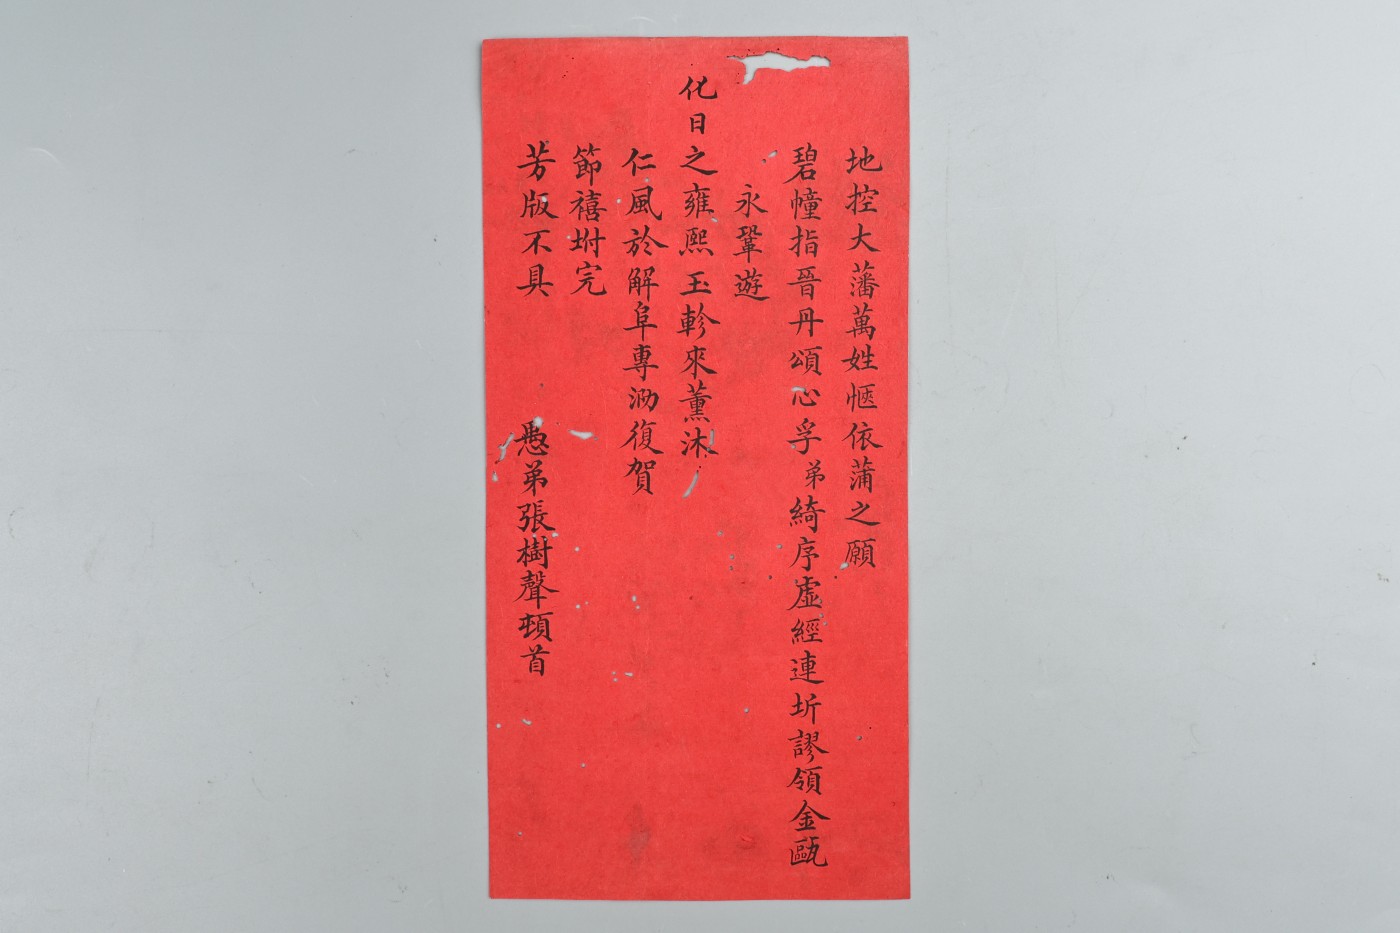 地控大藩萬姓愜依蒲之願
碧幢指晉丹頌心孚弟綺序虛經連圻謬領金甌
永鞏遊
化日之雍熙玉軫來薰沐
仁風於解阜專泐復賀
節禧坿完
芳版不具
愚弟張樹聲頓首